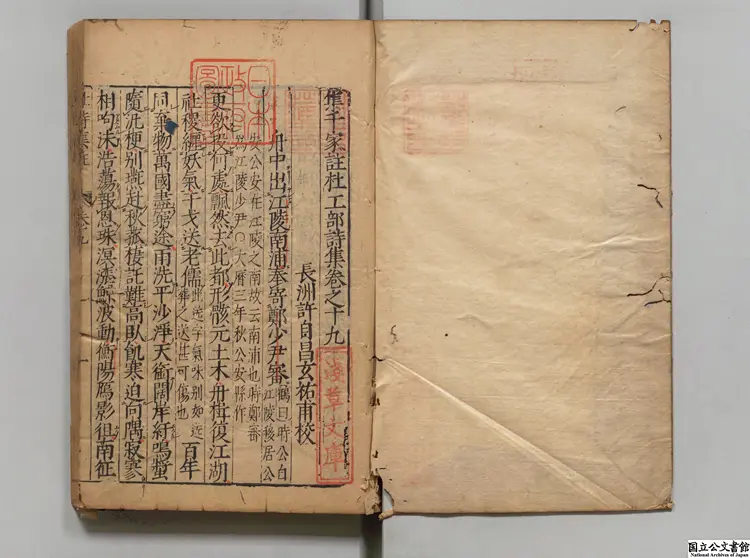 集千家註杜工部詩集卷之十九
長洲許自昌玄祐甫校
舟中出江陵南浦奉寄鄭少尹審
鶴曰時公自
江陵移居公
安公安在江陵之南故云南浦也時鄭審
爲江陵少尹○大曆三年秋公安縣作
更欲投何處飄然去此都形骸元土木舟楫復江湖
社稷纏妖氣干戈送老儒
此送字氣味別如
葬之送甚可傷也
百年
同棄物萬國盡窮途雨洗平沙淨天銜闊岸紆鳴螿
隨汎梗別燕赴秋菰棲託難高臥飢寒迫向隅寂寥
相呴沫浩蕩報恩珠溟漲鯨波動衡陽鴈影徂南征
杜詩集註
日本政府圖書
淺草文庫
国立公文書館
National Archives of Japan